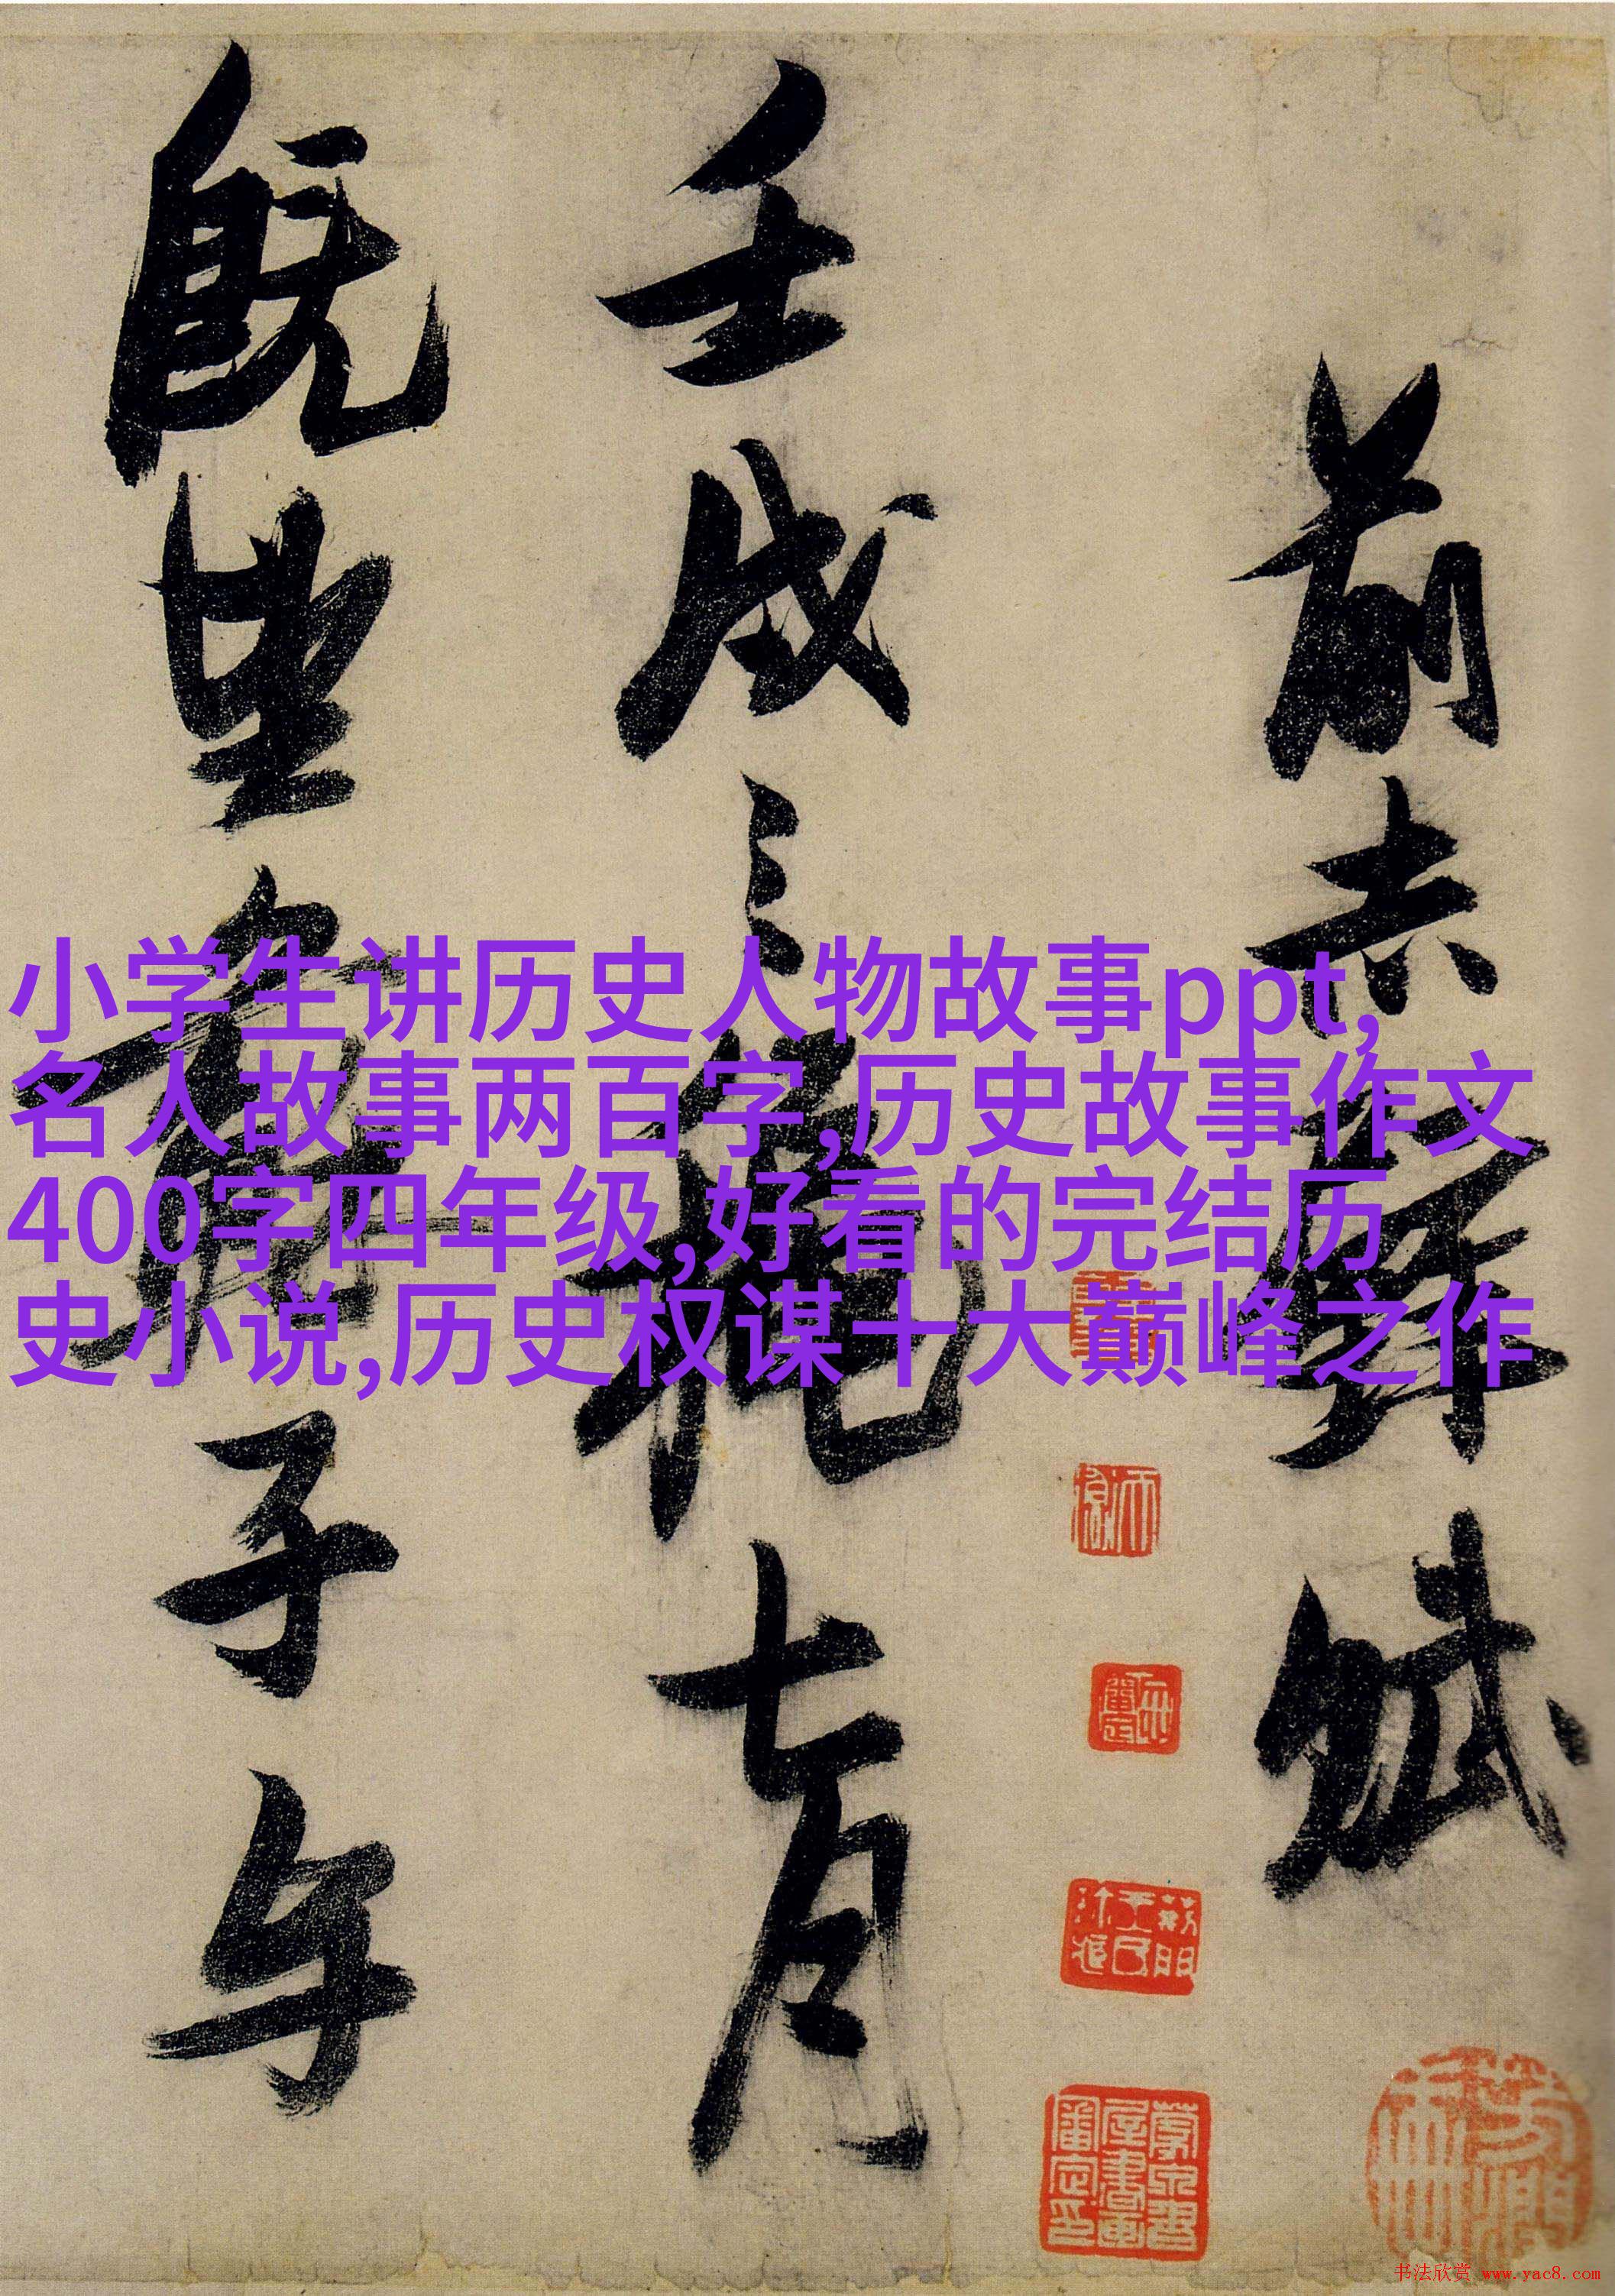 前赤壁賦
壬戌之
七月
既望蘇子与
小学生讲历史人物故事ppt,
名人故事两百字,历史故事作文
400字四年级,好看的完结历
史小说,历史权谋十大巅峰之作
书法欣赏 www.yac8.com